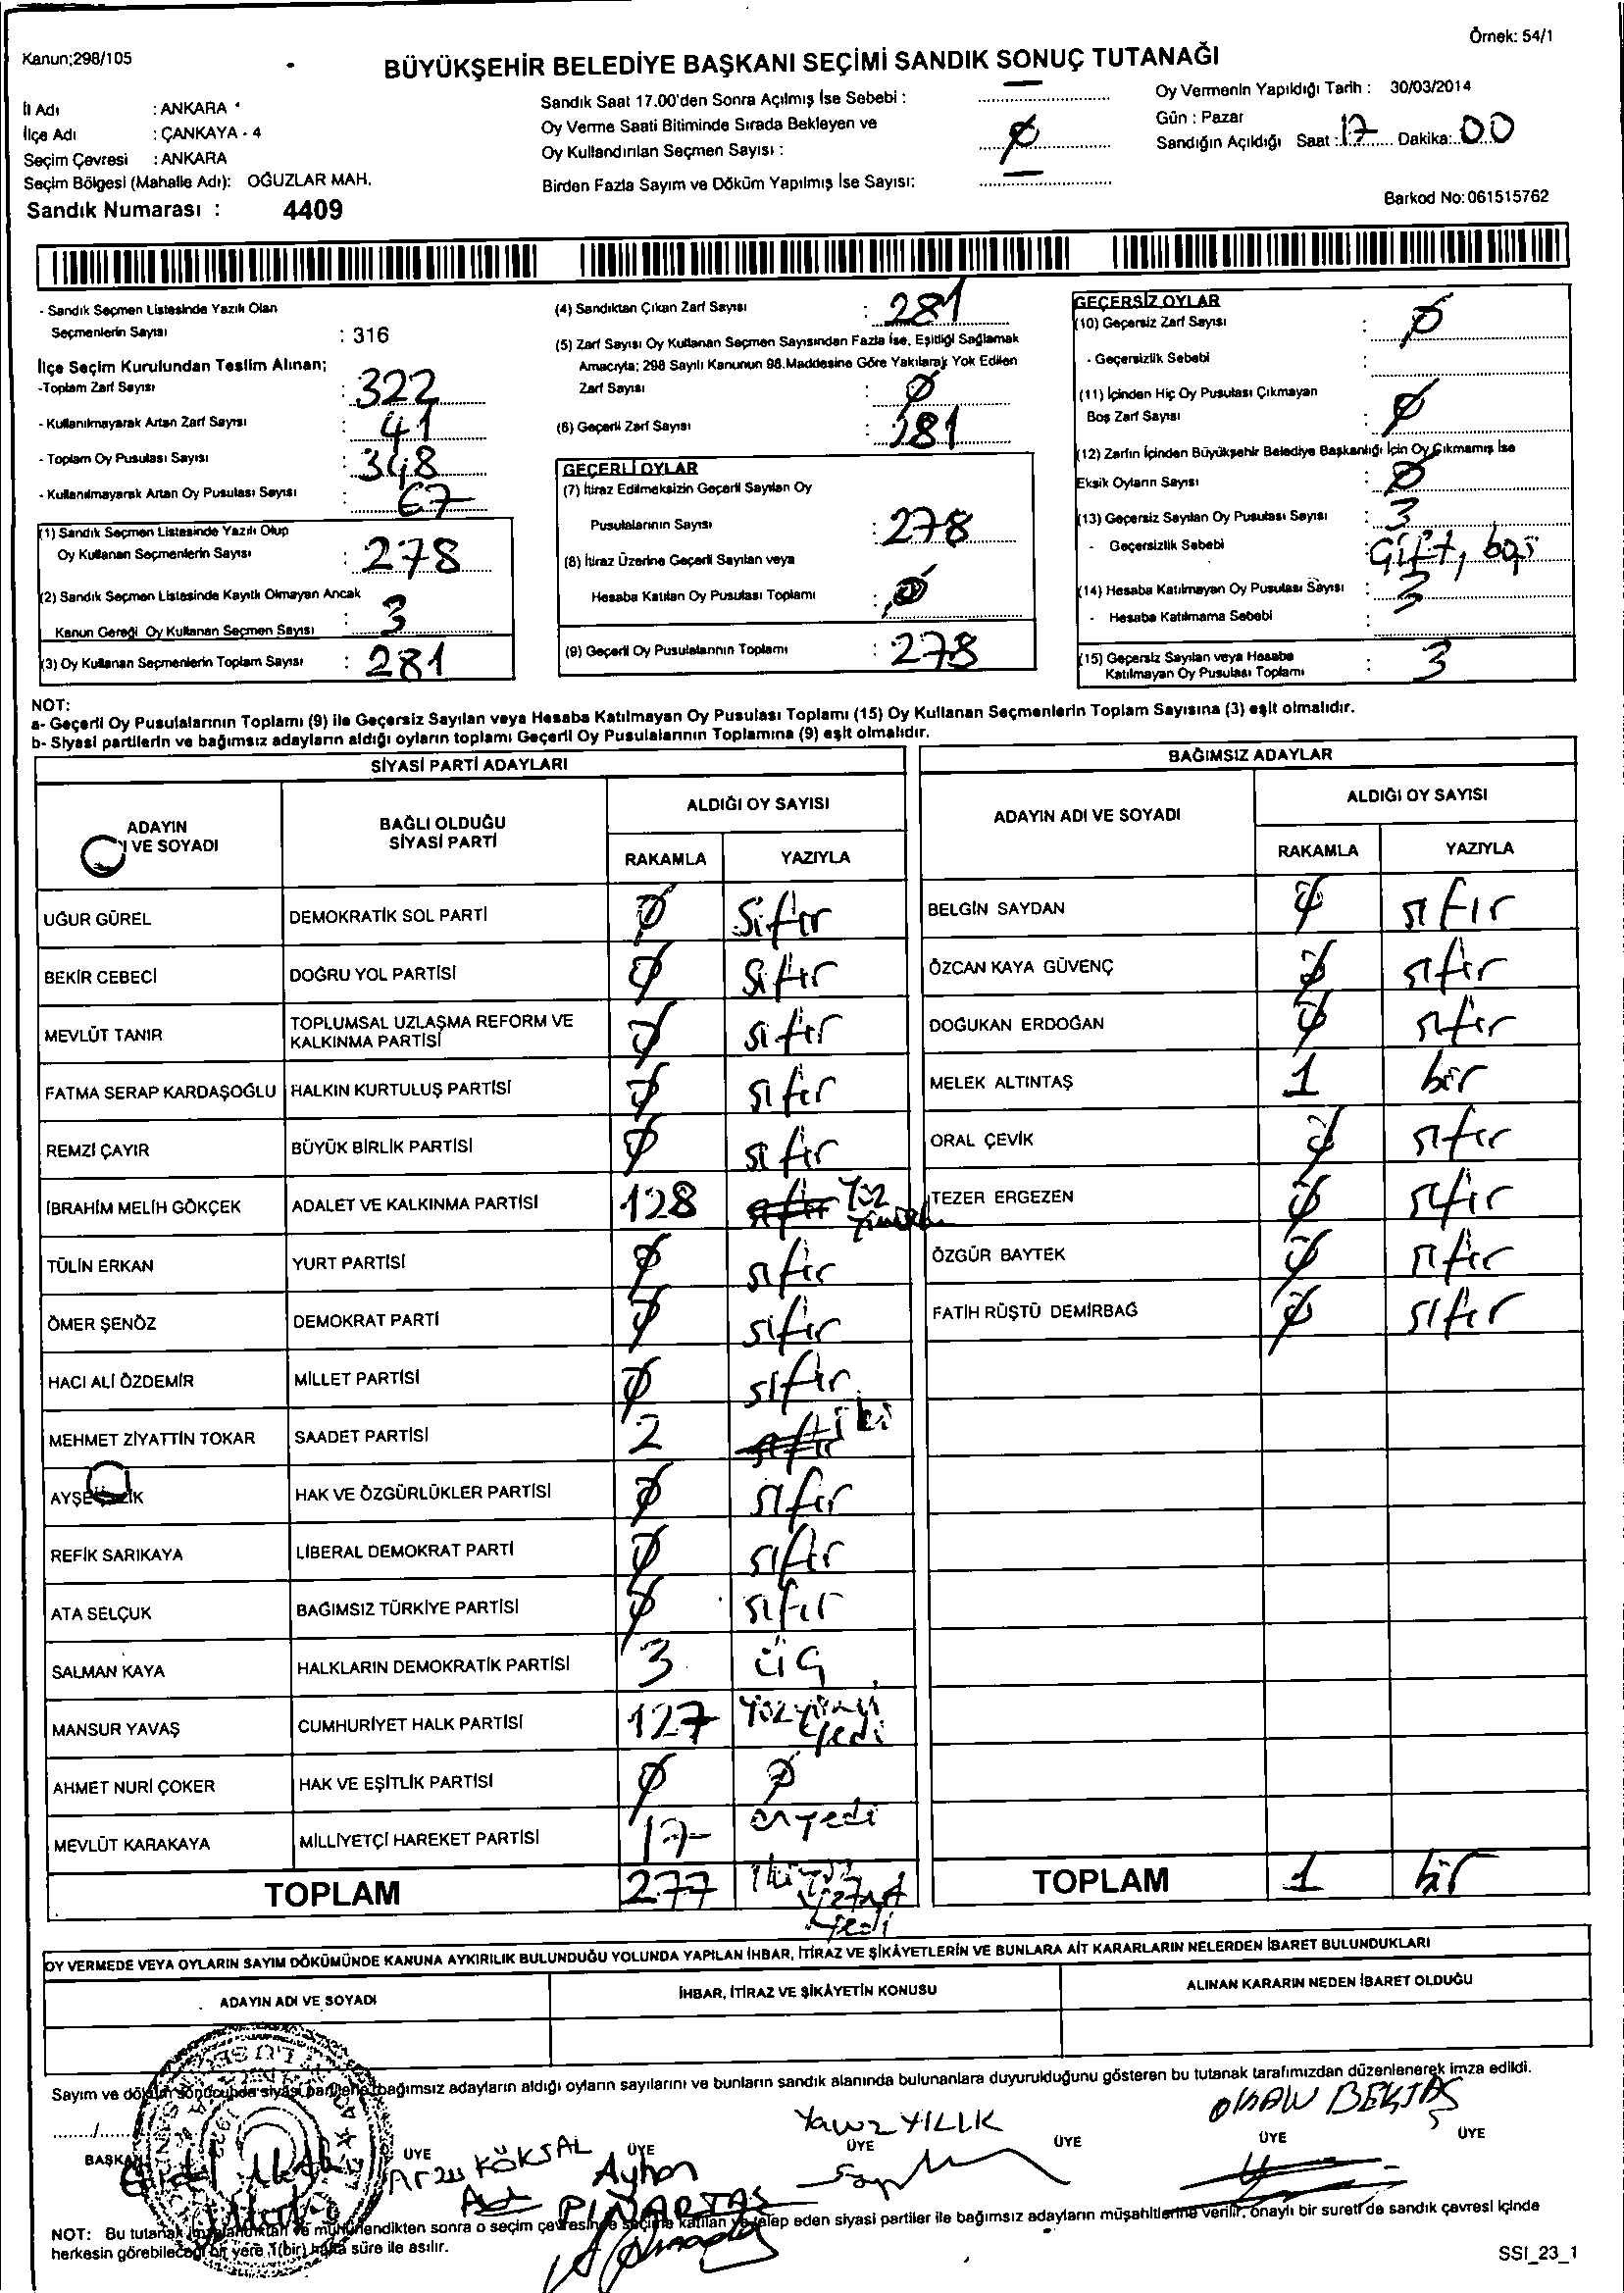 Örnek: 54/1
Kanun;298/105
BÜYÜKŞEHİR BELEDİYE BAŞKANI SEÇİMİ SANDIK SONUÇ TUTANAĞI
İl Adı : ANKARA
İlçe Adı : ÇANKAYA - 4
Seçim Çevresi : ANKARA
Seçim Bölgesi (Mahalle Adı): OĞUZLAR MAH.
Sandık Numarası : 4409
Sandık Saat 17.00'den Sonra Açılmış İse Sebebi : —
Oy Verme Saati Bitiminde Sırada Bekleyen ve
Oy Kullandırılan Seçmen Sayısı : Ø
Birden Fazla Sayım ve Döküm Yapılmış İse Sayısı: —
Oy Vermenin Yapıldığı Tarih : 30/03/2014
Gün : Pazar
Sandığın Açıldığı Saat : 17 Dakika: 00
Barkod No: 061515762
- Sandık Seçmen Listesinde Yazılı Olan
Seçmenlerin Sayısı : 316
İlçe Seçim Kurulundan Teslim Alınan;
-Toplam Zarf Sayısı : 322
- Kullanılmayarak Artan Zarf Sayısı : 41
- Toplam Oy Pusulası Sayısı : 348
- Kullanılmayarak Artan Oy Pusulası Sayısı : 67
(1) Sandık Seçmen Listesinde Yazılı Olup
Oy Kullanan Seçmenlerin Sayısı : 278
(2) Sandık Seçmen Listesinde Kayıtlı Olmayan Ancak
Kanun Gereği Oy Kullanan Seçmen Sayısı : 3
(3) Oy Kullanan Seçmenlerin Toplam Sayısı : 281
(4) Sandıktan Çıkan Zarf Sayısı : 281
(5) Zarf Sayısı Oy Kullanan Seçmen Sayısından Fazla İse, Eşitliği Sağlamak
Amacıyla; 298 Sayılı Kanunun 98.Maddesine Göre Yakılarak Yok Edilen
Zarf Sayısı : Ø
(6) Geçerli Zarf Sayısı : 281
GEÇERLİ OYLAR
(7) İtiraz Edilmeksizin Geçerli Sayılan Oy
Pusulalarının Sayısı : 278
(8) İtiraz Üzerine Geçerli Sayılan veya
Hesaba Katılan Oy Pusulası Toplamı : Ø
(9) Geçerli Oy Pusulalarının Toplamı : 278
GEÇERSİZ OYLAR
(10) Geçersiz Zarf Sayısı : Ø
- Geçersizlik Sebebi :
(11) İçinden Hiç Oy Pusulası Çıkmayan
Boş Zarf Sayısı : Ø
(12) Zarfın İçinden Büyükşehir Belediye Başkanlığı İçin Oy Çıkmamış İse
Eksik Oyların Sayısı : Ø
(13) Geçersiz Sayılan Oy Pusulası Sayısı : 3
- Geçersizlik Sebebi : Çift, boş
(14) Hesaba Katılmayan Oy Pusulası Sayısı : 3
- Hesaba Katılmama Sebebi :
(15) Geçersiz Sayılan veya Hesaba
Katılmayan Oy Pusulası Toplamı : 3
NOT:
a- Geçerli Oy Pusulalarının Toplamı (9) ile Geçersiz Sayılan veya Hesaba Katılmayan Oy Pusulası Toplamı (15) Oy Kullanan Seçmenlerin Toplam Sayısına (3) eşit olmalıdır.
b- Siyasi partilerin ve bağımsız adayların aldığı oyların toplamı Geçerli Oy Pusulalarının Toplamına (9) eşit olmalıdır.
SİYASİ PARTİ ADAYLARI
ADAYIN
I VE SOYADI
BAĞLI OLDUĞU
SİYASİ PARTİ
ALDIĞI OY SAYISI
RAKAMLA YAZIYLA
UĞUR GÜREL DEMOKRATİK SOL PARTİ Ø Sıfır
BEKİR CEBECİ DOĞRU YOL PARTİSİ Ø Sıfır
MEVLÜT TANIR TOPLUMSAL UZLAŞMA REFORM VE
KALKINMA PARTİSİ Ø sıfır
FATMA SERAP KARDAŞOĞLU HALKIN KURTULUŞ PARTİSİ Ø sıfır
REMZİ ÇAYIR BÜYÜK BİRLİK PARTİSİ Ø sıfır
İBRAHİM MELİH GÖKÇEK ADALET VE KALKINMA PARTİSİ 128 sıfır Yüz
TÜLİN ERKAN YURT PARTİSİ Ø sıfır
ÖMER ŞENÖZ DEMOKRAT PARTİ Ø sıfır
HACI ALİ ÖZDEMİR MİLLET PARTİSİ Ø sıfır
MEHMET ZİYATTİN TOKAR SAADET PARTİSİ 2 sıfır iki
AYŞE HAK VE ÖZGÜRLÜKLER PARTİSİ Ø sıfır
REFİK SARIKAYA LİBERAL DEMOKRAT PARTİ Ø sıfır
ATA SELÇUK BAĞIMSIZ TÜRKİYE PARTİSİ Ø sıfır
SALMAN KAYA HALKLARIN DEMOKRATİK PARTİSİ 3 üç
MANSUR YAVAŞ CUMHURİYET HALK PARTİSİ 127 Yüzyirmi
yedi
AHMET NURİ ÇOKER HAK VE EŞİTLİK PARTİSİ Ø Ø
MEVLÜT KARAKAYA MİLLİYETÇİ HAREKET PARTİSİ 17 onyedi
TOPLAM 277 İkiyüz
yetmiş
yedi
BAĞIMSIZ ADAYLAR
ADAYIN ADI VE SOYADI
ALDIĞI OY SAYISI
RAKAMLA YAZIYLA
BELGİN SAYDAN Ø sıfır
ÖZCAN KAYA GÜVENÇ Ø sıfır
DOĞUKAN ERDOĞAN Ø sıfır
MELEK ALTINTAŞ 1 bir
ORAL ÇEVİK Ø sıfır
TEZER ERGEZEN Ø sıfır
ÖZGÜR BAYTEK Ø sıfır
FATİH RÜŞTÜ DEMİRBAĞ Ø sıfır
TOPLAM 1 bir
OY VERMEDE VEYA OYLARIN SAYIM DÖKÜMÜNDE KANUNA AYKIRILIK BULUNDUĞU YOLUNDA YAPILAN İHBAR, İTİRAZ VE ŞİKÂYETLERİN VE BUNLARA AİT KARARLARIN NELERDEN İBARET BULUNDUKLARI
ADAYIN ADI VE SOYADI İHBAR, İTİRAZ VE ŞİKÂYETİN KONUSU ALINAN KARARIN NEDEN İBARET OLDUĞU
Sayım ve döküm sonucunda siyasi partilerin, bağımsız adayların aldığı oyların sayılarını ve bunların sandık alanında bulunanlara duyurulduğunu gösteren bu tutanak tarafımızdan düzenlenerek imza edildi.
Yavuz YILLIK OKAN BEKTAŞ
BAŞKAN ÜYE ÜYE ÜYE ÜYE ÜYE ÜYE
Arzu KÖKSAL Ayhan
PINARTAŞ
NOT: Bu tutanak imzalandıktan ve mühürlendikten sonra o seçim çevresinde seçime katılan ve talep eden siyasi partiler ile bağımsız adayların müşahitlerine verilir, onaylı bir sureti de sandık çevresi içinde
herkesin görebileceği bir yere 1(bir) hafta süre ile asılır.
SSI_23_1